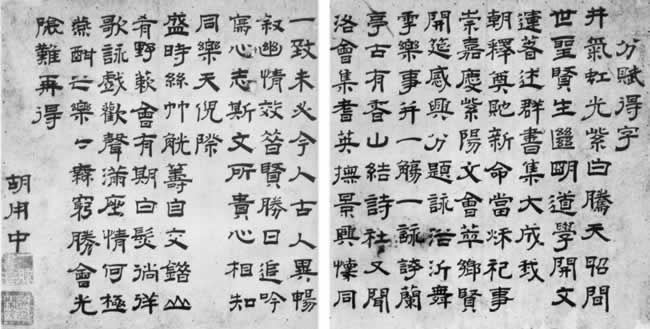 分賦得字
井氣虹光紫白騰天昭間
世聖賢生繼明道學開文
運著述群書集大成我
朝釋奠貤新命當秌祀事
崇嘉慶紫陽文會萃鄉賢
開筵感興分題詠浴沂舞
雩樂事并一觴一詠誇蘭
亭古有香山結詩社又聞
洛會集耆英撫景興懷同
一致未必今人古人異暢
敘幽情效昔賢勝日追吟
寫心志斯文所貴心相知
同樂天倪際
盛時絲竹觥籌自交錯山
肴野蔌會有期白髮徜徉
歌詠戲歡聲滿座情何極
燕酣之樂〻無窮勝會光
陰難再得
胡用中